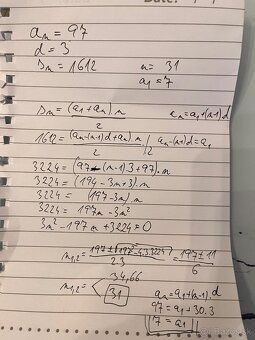 Date:
aₙ = 97
d = 3
sₙ = 1612 n = 31
a₁ = 7
sₙ = (a₁ + aₙ) . n / 2 aₙ = a₁ + (n-1) d
1612 = (aₙ - (n-1) d + aₙ) . n / 2 / aₙ - (n-1) d = a₁
3224 = (97 - (n-1) . 3 + 97) . n
3224 = (194 - 3n + 3) . n
3224 = (197 - 3n) . n
3224 = 197n - 3n²
3n² - 197n + 3224 = 0
n₁,₂ = 197 ± √(197² - 4.3.3224) / 2.3 = 197 ± 11 / 6
n₁,₂ = < 34,66
31
aₙ = a₁ + (n-1) . d
97 = a₁ + 30.3
7 = a₁